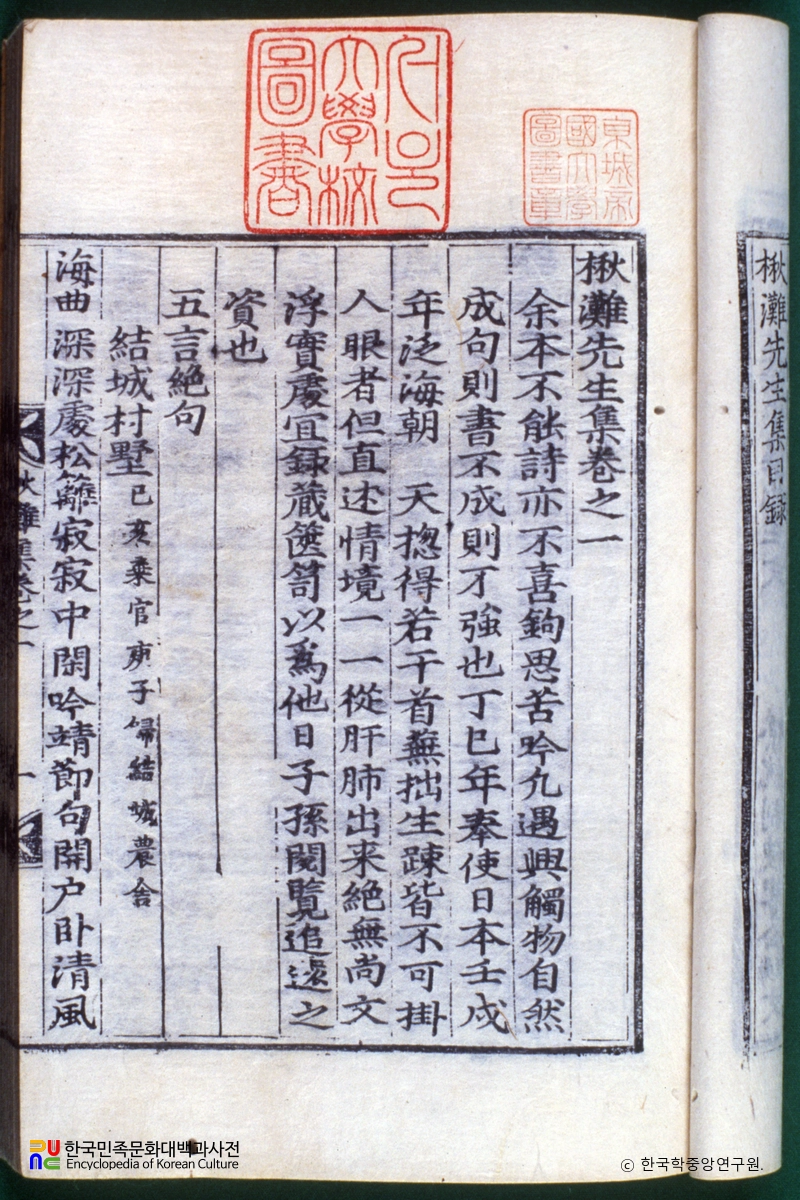 서울
大學校
圖書
京城帝
國大學
圖書章
楸灘先生集目錄
楸灘先生集卷之一
余本不能詩亦不喜鉤思苦吟凡遇興觸物自然
成句則書不成則不強也丁巳年奉使日本壬戌
年泛海朝 天摠得若干首蕪拙生踈皆不可掛
人眼者但直述情境一一從肝肺出来絶無尚文
浮實處宜録蔵篋笥以爲他日子孫閱覽追遠之
資也
五言絶句
結城村墅 己亥棄官庚子歸結城農舍
海曲深深處松籬寂寂中閑吟靖節句開户卧清風
楸灘集卷之一 一
한국민족문화대백과사전
Encyclopedia of Korean Culture
© 한국학중앙연구원.